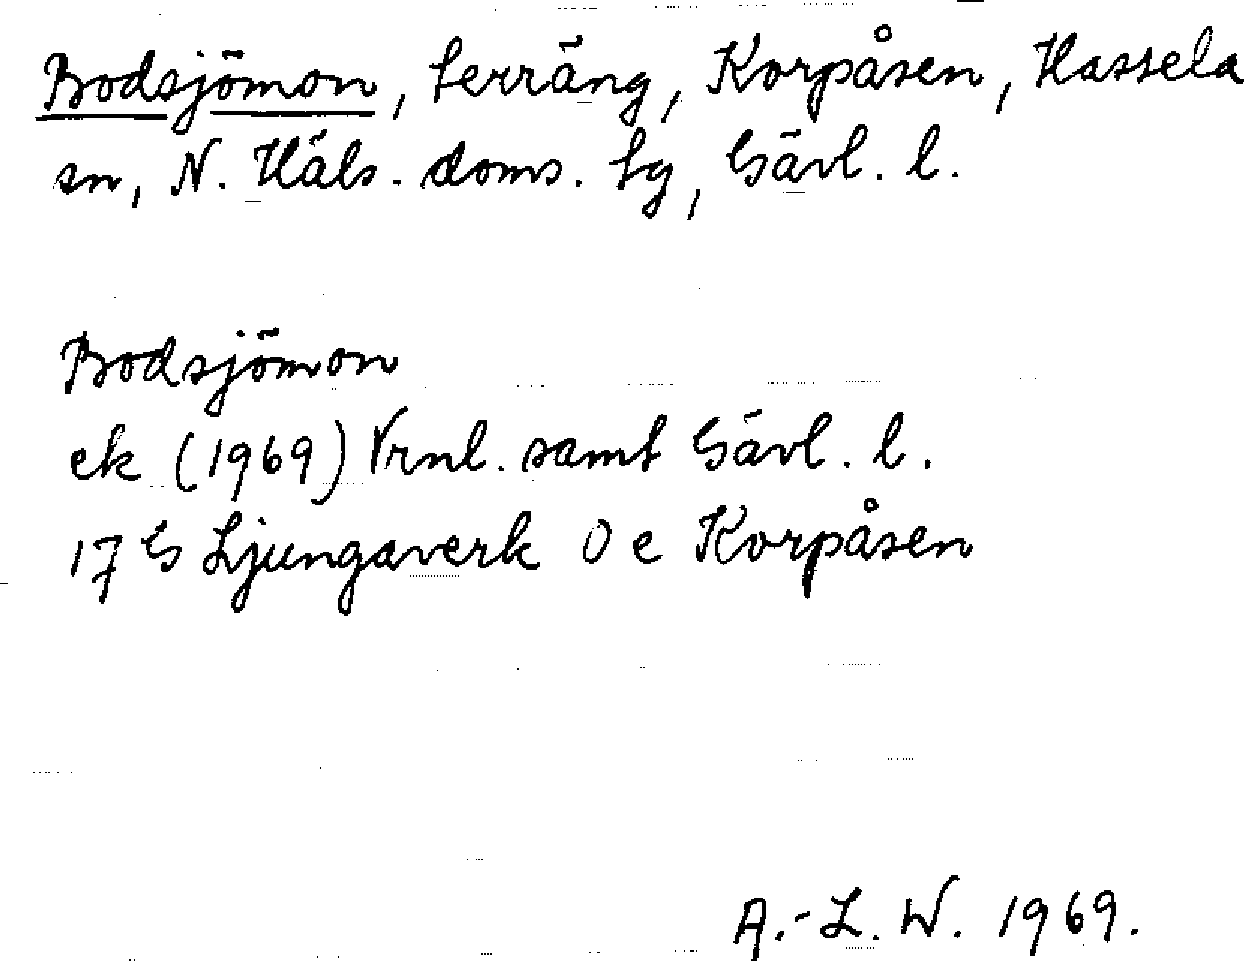 Bodsjömon, terräng, Korpåsen, Hassela
sn, N. Häls. doms. tg, Gävl. l.
Bodsjömon
ek (1969) Vrnl. samt Gävl. l.
17 G Ljungaverk 0 e Korpåsen
A.-L. W. 1969.